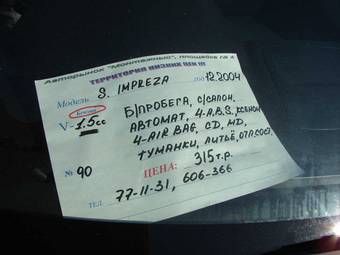 Авторынок "Монтажный", площадка № 4
ТЕРРИТОРИЯ НИЗКИХ ЦЕН !!!
Модель S. IMPREZA год 12.2004
Бензин
V- 1.5 сс Б/ПРОБЕГА, С/САЛОН,
АВТОМАТ, 4-A.B.S, КСЕНОН
4-AIR BAG, CD, MD,
ТУМАНКИ, ЛИТЬЁ, ОТЛ.СОСТ.
№ 90 ЦЕНА: 315 т.р.
ТЕЛ. 77-11-31, 606-366